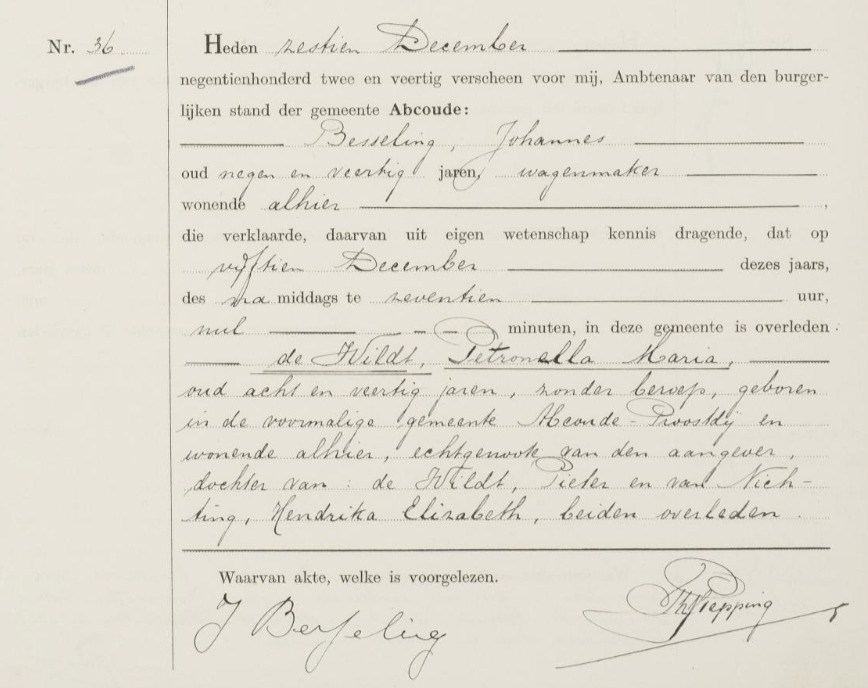 Nr. 36
Heden zestien December
negentienhonderd twee en veertig verscheen voor mij, Ambtenaar van den burger-
lijken stand der gemeente Abcoude:
Besseling, Johannes
oud negen en veertig jaren, wagenmaker
wonende alhier ,
die verklaarde, daarvan uit eigen wetenschap kennis dragende, dat op
vijftien December dezes jaars,
des na middags te zeventien uur,
nul minuten, in deze gemeente is overleden :
de Wildt, Petronella Maria,
oud acht en veertig jaren, zonder beroep, geboren
in de voormalige gemeente Abcoude-Proostdij en
wonende alhier, echtgenoote van den aangever,
dochter van : de Wildt, Pieter en van Nich-
ting, Hendrika Elizabeth, beiden overleden.
Waarvan akte, welke is voorgelezen.
J Besseling